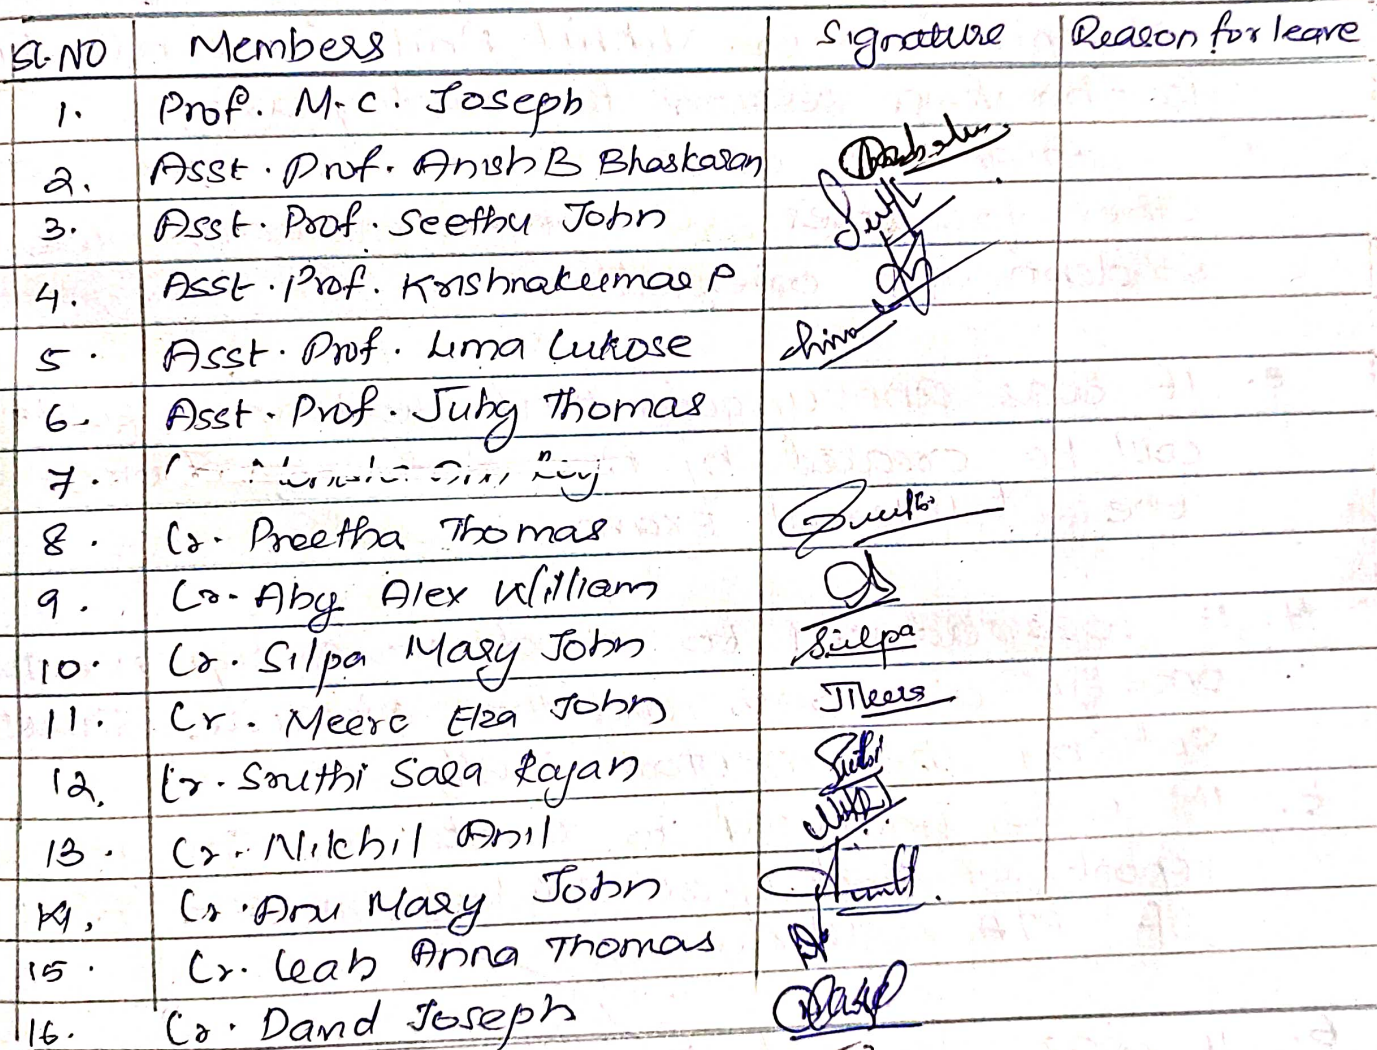 Sl. NO Members Signature Reason for leave
1. Prof. M. C. Joseph
2. Asst. Prof. Anish B Bhaskaran
3. Asst. Prof. Seethu John
4. Asst. Prof. Krishnakumar P
5. Asst. Prof. Lima Lukose
6. Asst. Prof. Juby Thomas
7. Roy
8. Cr. Preetha Thomas
9. Cr. Aby Alex William
10. Cr. Silpa Mary John Silpa
11. Cr. Meera Elza John Meera
12. Cr. Sruthi Sara Rajan
13. Cr. Nikhil Anil
14. Cr. Anu Mary John
15. Cr. Leah Anna Thomas
16. Cr. David Joseph